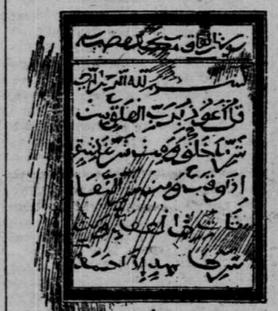 سورة الفلق
بسم الله الرحمن الرحيم
قل أعوذ برب الفلق من
شر ما خلق ومن شر غاسق
اذا وقب ومن شر النفا
ثات في العقد ومن
شر حاسد اذا حسد